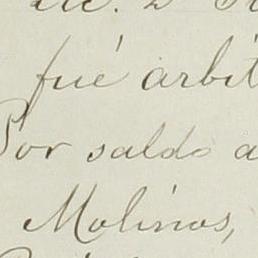 fué arbit
Por saldo a
Molinos,